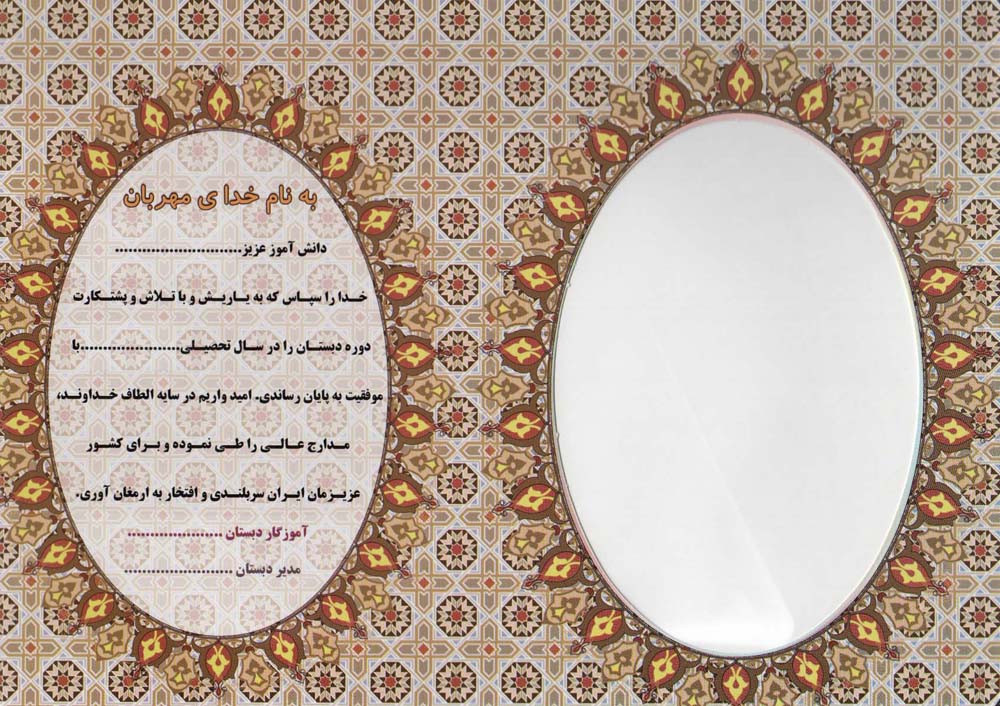 به نام خدا ی مهربان
دانش آموز عزیز............................
خدا را سپاس که به یاریش و با تلاش و پشتکارت
دوره دبستان را در سال تحصیلی......................با
موفقیت به پایان رساندی. امید واریم در سایه الطاف خداوند،
مدارج عالی را طی نموده و برای کشور
عزیزمان ایران سربلندی و افتخار به ارمغان آوری.
آموزگار دبستان .....................
مدیر دبستان ........................